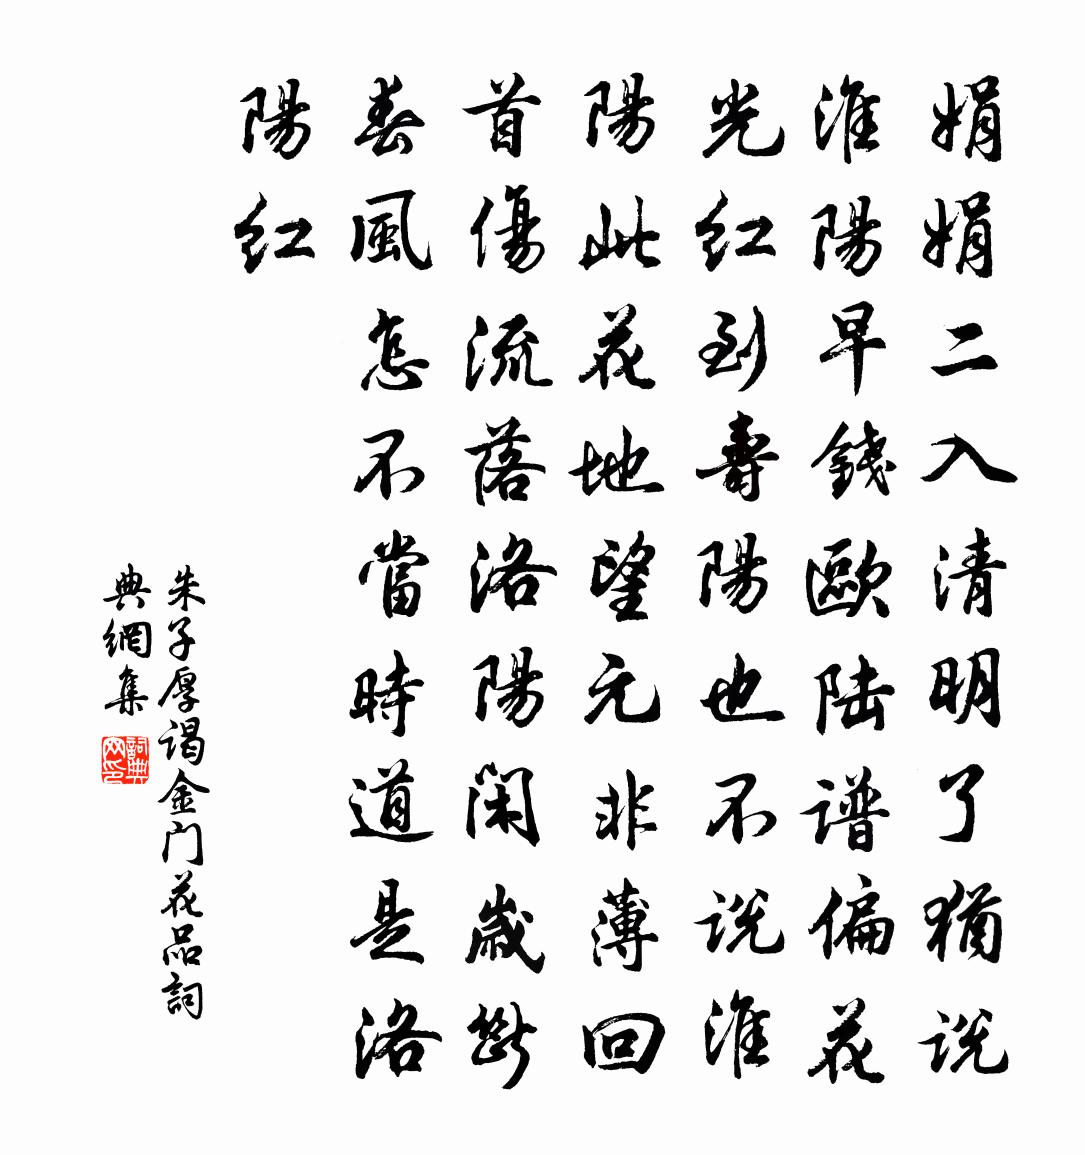 娟娟二入清明了猶说
淮陽早錢歐陆谱偏花
光红到壽陽也不说淮
陽此花地望元非薄回
首傷流落洛陽閑歲斷
春風怎不當時道是洛
陽红
朱子厚谒金门花品詞
典網集
詞典
网印